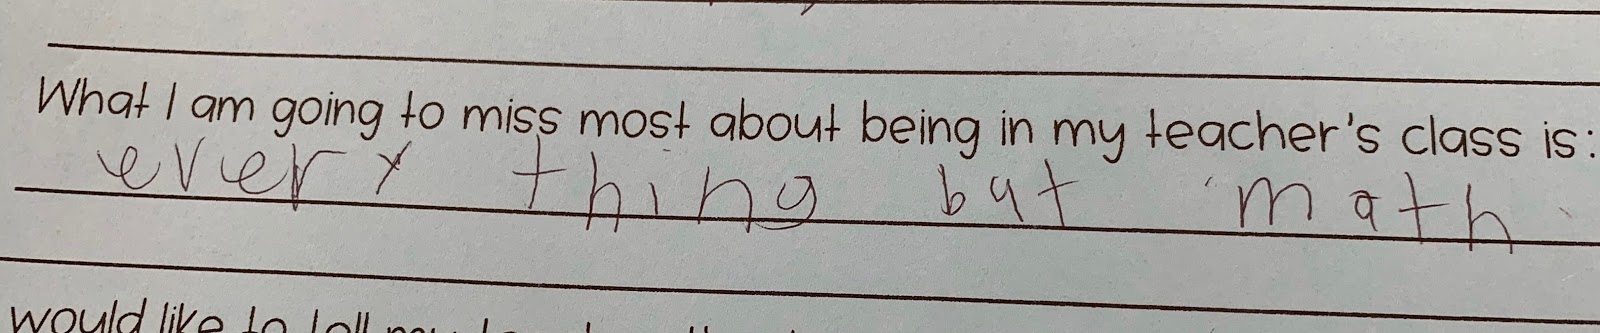 What I am going to miss most about being in my teacher's class is:
every thing but math
would like to tell my